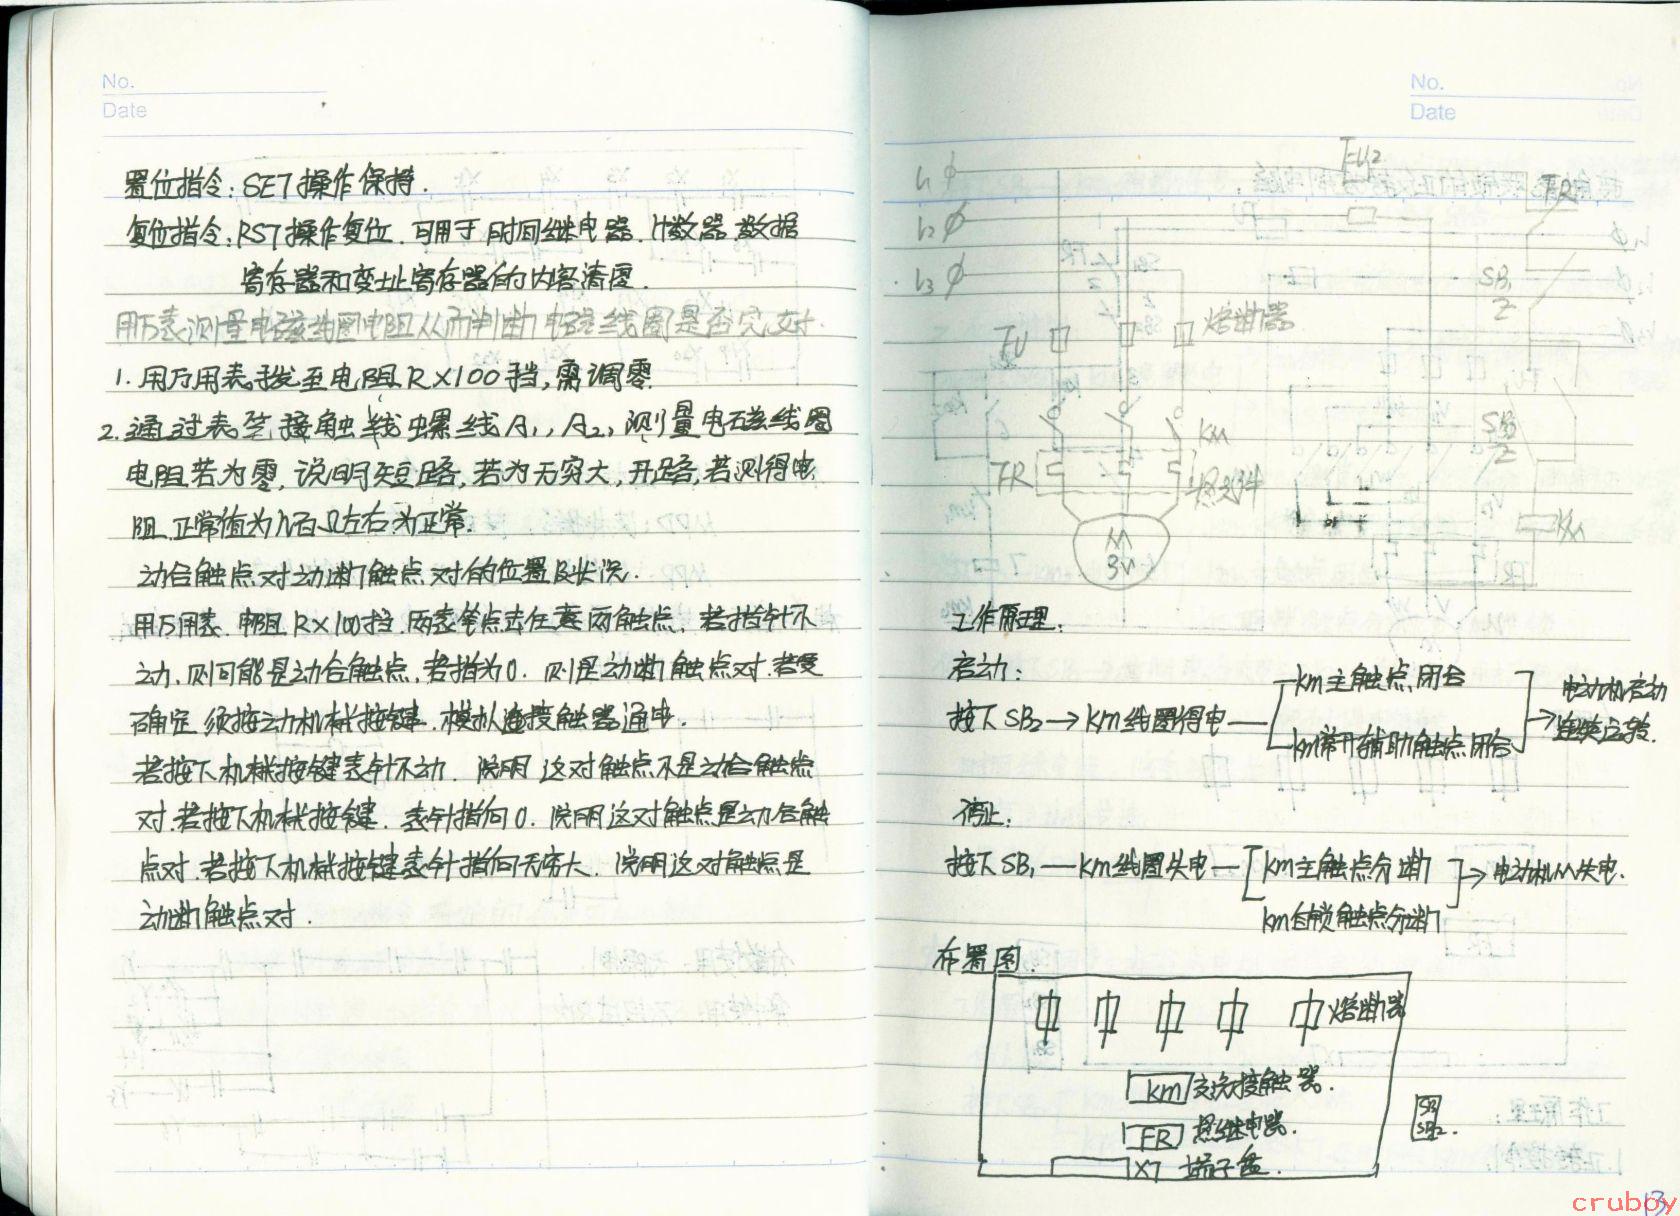 No.
Date
置位指令: SET操作保持.
复位指令: RST操作复位. 可用于时间继电器. 计数器 数据
寄存器和变址寄存器的内容清零.
用万表测量电磁线圈电阻从而判断电磁线圈是否完好.
1. 用万用表拨至电阻R×100挡,需调零.
2. 通过表笔接触 线 螺线A1, A2, 测量电磁线圈
电阻若为零, 说明短路, 若为无穷大, 开路, 若测得电
阻 正常值为几百Ω左右为正常.
动合触点对动断触点对的位置及状况.
用万用表. 电阻R×100挡. 两表笔点击任意两触点. 若指针不
动. 则可能是动合触点, 若指为0. 则是动断触点对. 若要
确定 须按动机械按键. 模拟 接触器通电.
若按下机械按键表针不动. 说明 这对触点不是动合触点
对. 若按下机械按键. 表针指向0. 说明这对触点是动合触
点对. 若按下机械按键表针指向无穷大. 说明这对触点是
动断触点对.
No.
Date
L1
L2
L3
FU2
FR
SB1
FU
熔断器
SB2
KM
FR
热元件
KM
M
3~
工作原理:
启动:
按下SB2→KM线圈得电
KM主触点闭合
KM常开辅助触点闭合
电动机启动
连续运转.
停止:
按下SB1—KM线圈失电
KM主触点分断
KM自锁触点分断
电动机M失电.
布置图.
熔断器
KM 交流接触器.
FR 热继电器.
XT 端子盘.
SB1
SB2
13
cruboy